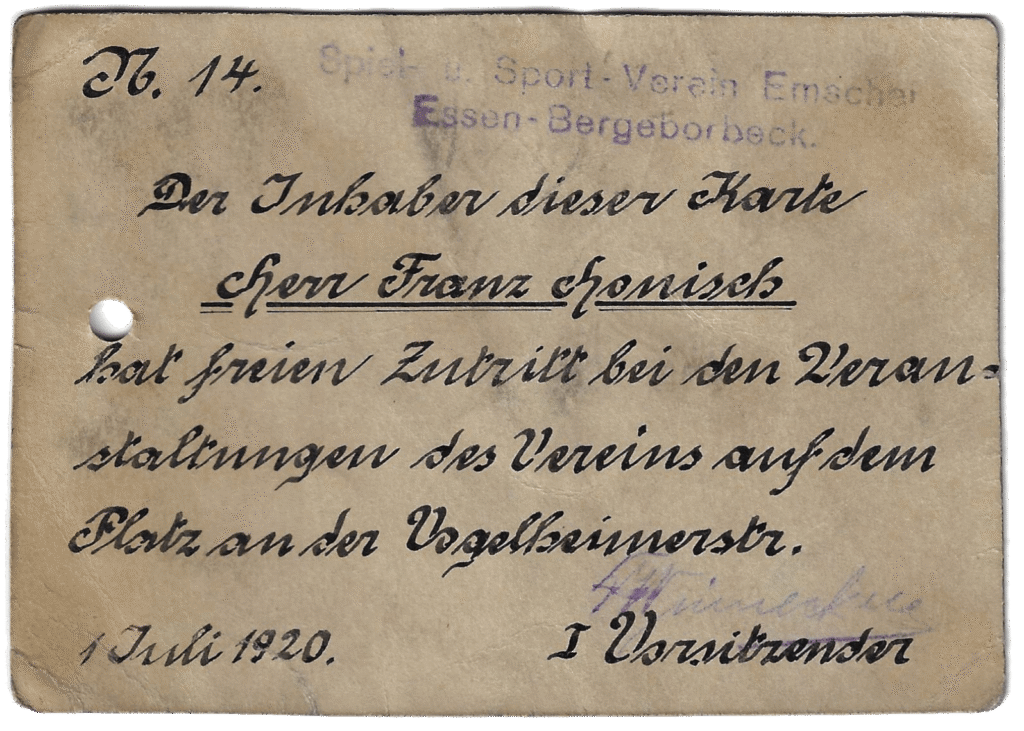 N. 14.
Spiel- u. Sport-Verein Emscher
Essen-Bergeborbeck.
Der Inhaber dieser Karte
Herr Franz Honisch
hat freien Zutritt bei den Veran-
staltungen des Vereins auf dem
Platz an der Vogelheimerstr.
1 Juli 1920.
I Vorsitzender